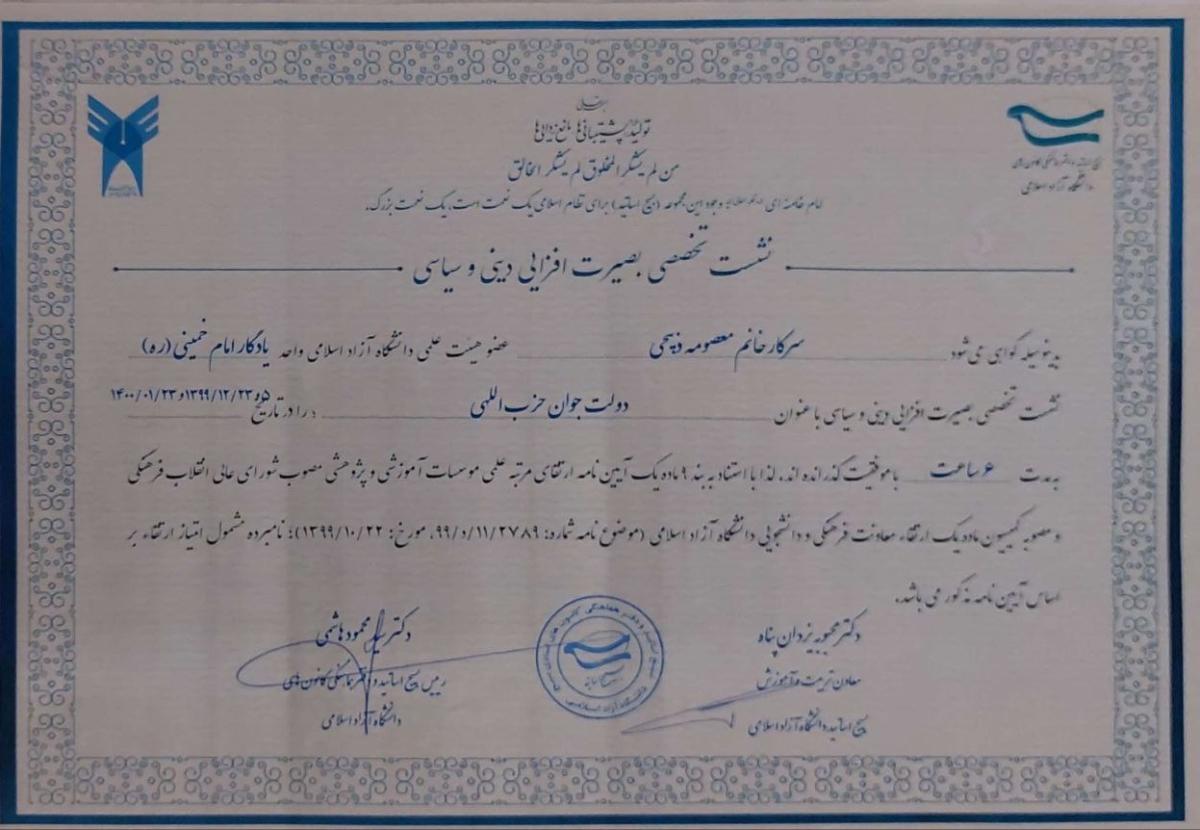 بسمه تعالی
تولید؛ پشتیبانی‌ها، مانع‌زدایی‌ها
من لم یشکر المخلوق لم یشکر الخالق
امام خامنه ای وجود این مجموعه (بسیج اساتید) برای نظام اسلامی یک نعمت است، یک نعمت بزرگ.
دانشگاه آزاد اسلامی
نشست تخصصی بصیرت افزایی دینی و سیاسی
بدینوسیله گواهی می شود سرکار خانم معصومه ذبیحی عضو هیئت علمی دانشگاه آزاد اسلامی واحد یادگار امام خمینی (ره)
نشست تخصصی بصیرت افزایی دینی و سیاسی با عنوان دولت جوان حزب اللهی را در تاریخ ۵و۱۳۹۹/۱۲/۲۳و۱۴۰۰/۰۱/۲۳
به مدت ۶ ساعت با موفقیت گذرانده اند، لذا با استناد به بند ۹ ماده یک آیین نامه ارتقای مرتبه علمی موسسات آموزشی و پژوهشی مصوب شورای عالی انقلاب فرهنگی
و مصوبه کمیسیون ماده یک ارتقاء معاونت فرهنگی و دانشجویی دانشگاه آزاد اسلامی (موضوع نامه شماره: ۹۹/د/۱۱/۲۷۸۹، مورخ: ۱۳۹۹/۱۰/۲۲)؛ نامبرده مشمول امتیاز ارتقاء بر
اساس آیین نامه مذکور می باشد.
دکتر محبوبه یزدان پناه
معاون تربیت و آموزش
بسیج اساتید دانشگاه آزاد اسلامی
دکتر سید محمود هاشمی
رییس بسیج اساتید و دفتر هماهنگی کانون های
دانشگاه آزاد اسلامی